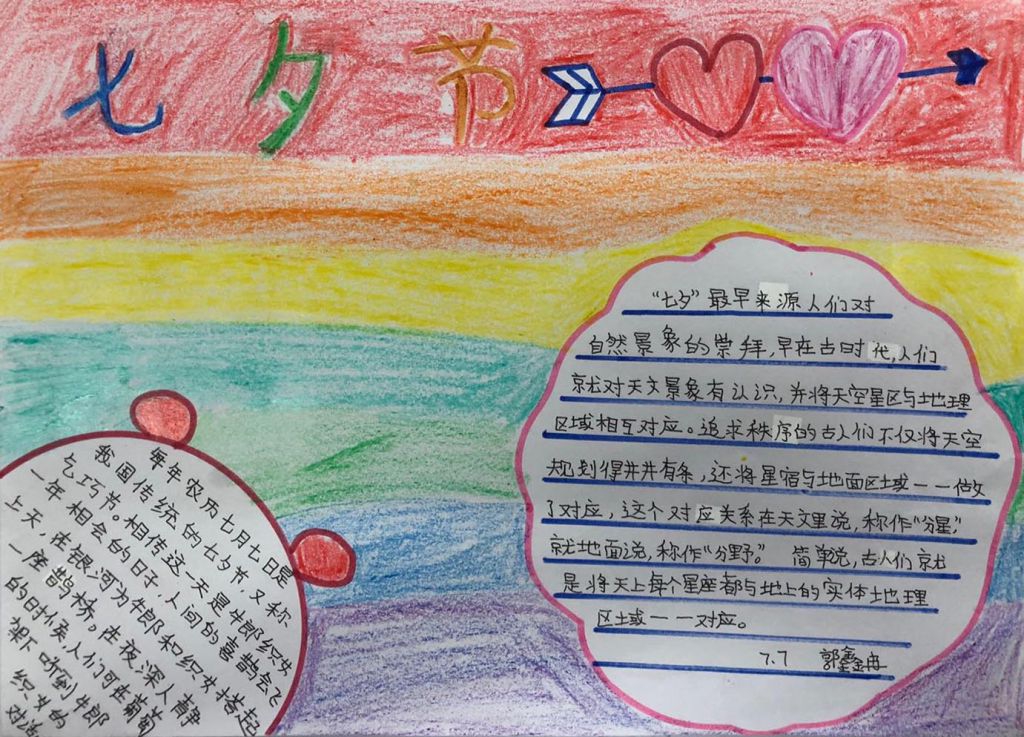 七夕节
每年农历七月七日是
我国传统的七夕节,又称
乞巧节。相传这一天是牛郎织女
一年相会的日子,人间的喜鹊会飞
上天,在银河为牛郎和织女搭起
一座鹊桥。在夜深人静
的时候,人们可在葡萄
架下听到牛郎
织女的
对话
“七夕”最早来源人们对
自然景象的崇拜,早在古时代,人们
就对天文景象有认识,并将天空星区与地理
区域相互对应。追求秩序的古人们不仅将天空
规划得井井有条,还将星宿与地面区域一一做好
了对应,这个对应关系在天文里说,称作“分星”,
就地面说,称作“分野。” 简单说,古人们就
是将天上每个星座都与地上的实体地理
区域一一对应。
7.7 郭鑫冉